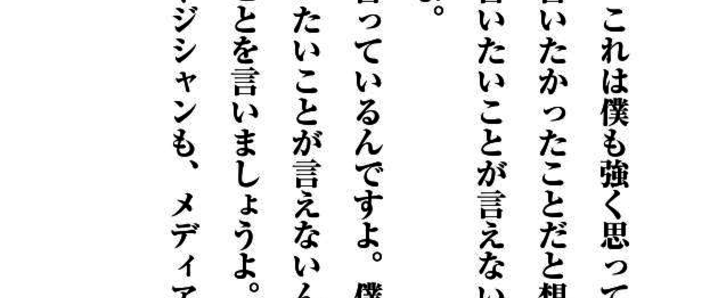 これは僕も強く思って
言いたかったことだと想
言いたいことが言えない
よ。
言っているんですよ。僕
たいことが言えないん
とを言いましょうよ。
ジシャンも、メディア